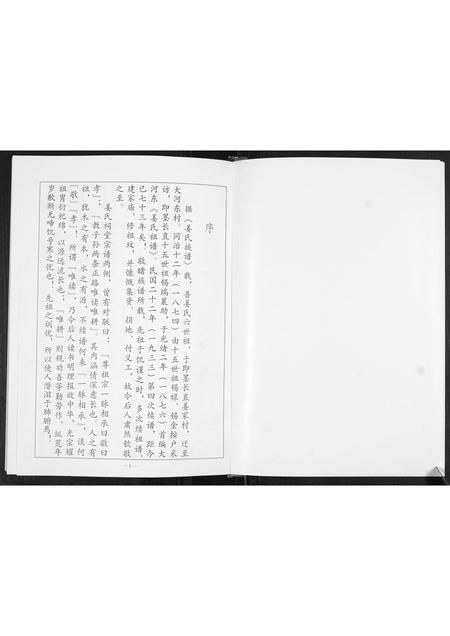 序
据《姜氏族谱》载，吾姜氏六世祖，于即墨长直姜家村，迁至
大河东村。同治十二年（一八七四）由十五世祖锡禄、锡金按户采
访，即墨长直十五世祖锡瑞襄助，于光绪二年（一八七六）首编大
河东《姜氏祖谱》民国二十二年（一九三三）第四次续谱，距今
已七十三年矣！敬睹族谱所载，先祖于饥谨之时，多次续祖谱、
建家庙、修祖坟，并慷慨集资、捐地、付义工，故令后人肃然钦敬
之至。
姜氏祠堂宗谱两侧，曾有对联曰：「尊祖宗一脉相承曰敬曰
孝」；「教子孙两条正路唯读唯耕」。其内涵情深意长也。人之有
祖，犹木之有本，水之有源，不续谱何来「一脉相承」，谈何
「敬」「孝」！所谓「唯读」，乃令后人读书明理报效中华，光宗耀
祖胄衍祀绵，以源远流长也；「唯耕」则规劝吾等勤劳作，纵荒年
岁歉斯无啼饥号寒之忧也！先祖之训优，所以使人潜泪于肺腑焉！
－1－